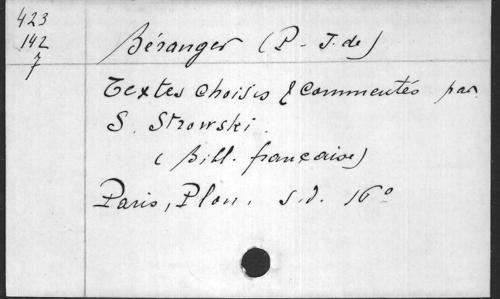 423
142
7
Béranger (P.-J. de)
Textes choisis & commentés par
S. Strowski.
(Bibl. française)
Paris, Plon. s.d. 16°